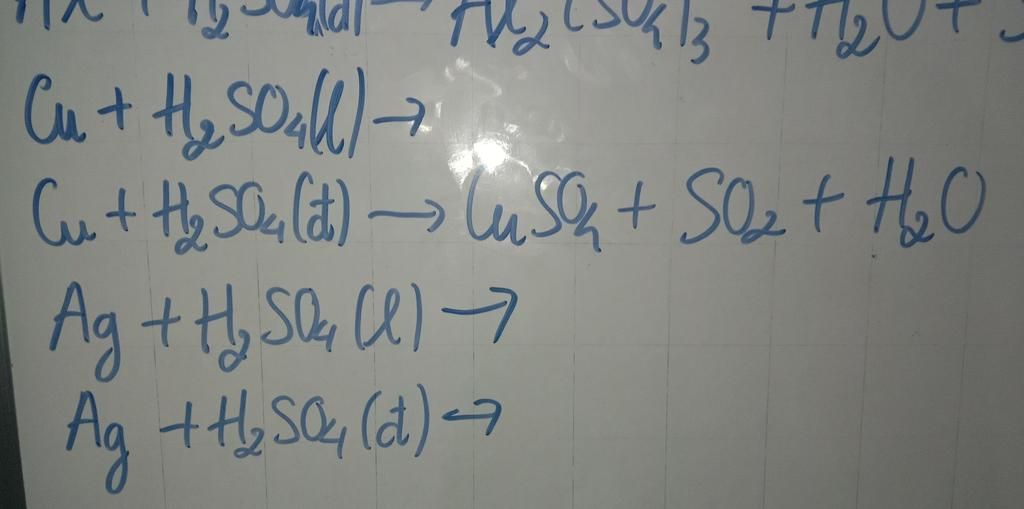 Al + H₂SO₄(d) → Al₂(SO₄)₃ + H₂O + S
Cu + H₂SO₄(l) →
Cu + H₂SO₄(d) → CuSO₄ + SO₂ + H₂O
Ag + H₂SO₄(l) →
Ag + H₂SO₄(d) →